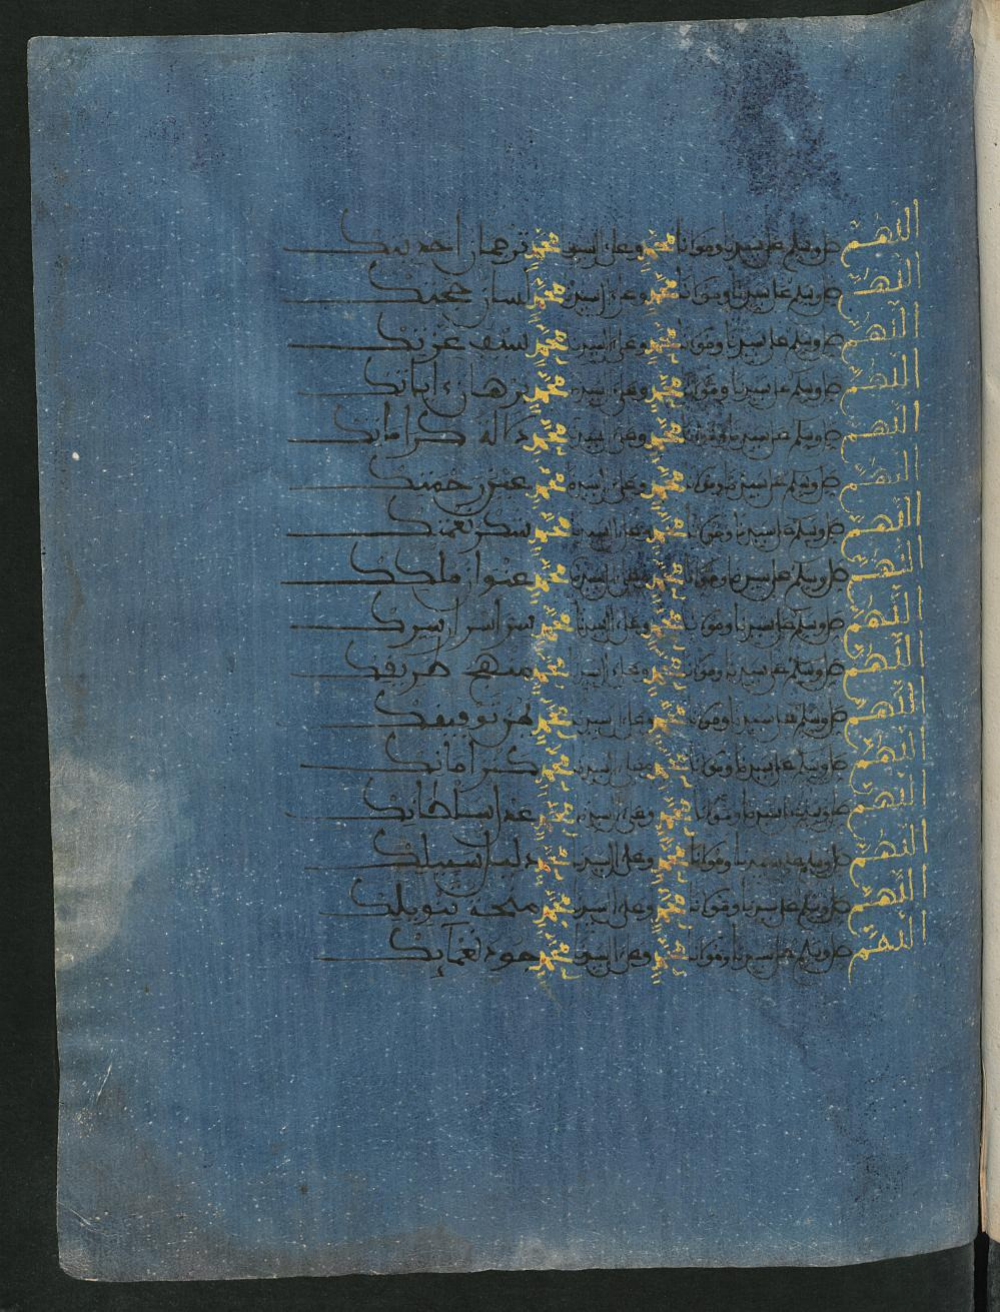 اللهم صل وسلم على سيدنا ومولانا محمد وعلى ال سيدنا محمد ترجمان احديتك
اللهم صل وسلم على سيدنا ومولانا محمد وعلى ال سيدنا محمد لسان حجتك
اللهم صل وسلم على سيدنا ومولانا محمد وعلى ال سيدنا محمد سيف عزتك
اللهم صل وسلم على سيدنا ومولانا محمد وعلى ال سيدنا محمد برهان ءاياتك
اللهم صل وسلم على سيدنا ومولانا محمد وعلى ال سيدنا محمد كراماتك
اللهم صل وسلم على سيدنا ومولانا محمد وعلى ال سيدنا محمد عين رحمتك
اللهم صل وسلم على سيدنا ومولانا محمد وعلى ال سيدنا محمد شكر نعمتك
اللهم صل وسلم على سيدنا ومولانا محمد وعلى ال سيدنا محمد عنوان ملكك
اللهم صل وسلم على سيدنا ومولانا محمد وعلى ال سيدنا محمد
اللهم صل وسلم على سيدنا ومولانا محمد وعلى ال سيدنا محمد منهج طريقك
اللهم صل وسلم على سيدنا ومولانا محمد وعلى ال سيدنا محمد توفيقك
اللهم صل وسلم على سيدنا ومولانا محمد وعلى ال سيدنا محمد كنز امانتك
اللهم صل وسلم على سيدنا ومولانا محمد وعلى ال سيدنا محمد سلطانك
اللهم صل وسلم على سيدنا ومولانا محمد وعلى ال سيدنا محمد دليل سبيلك
اللهم صل وسلم على سيدنا ومولانا محمد وعلى ال سيدنا محمد منحة تنويلك
اللهم صل وسلم على سيدنا ومولانا محمد وعلى ال سيدنا محمد جود نعمايك